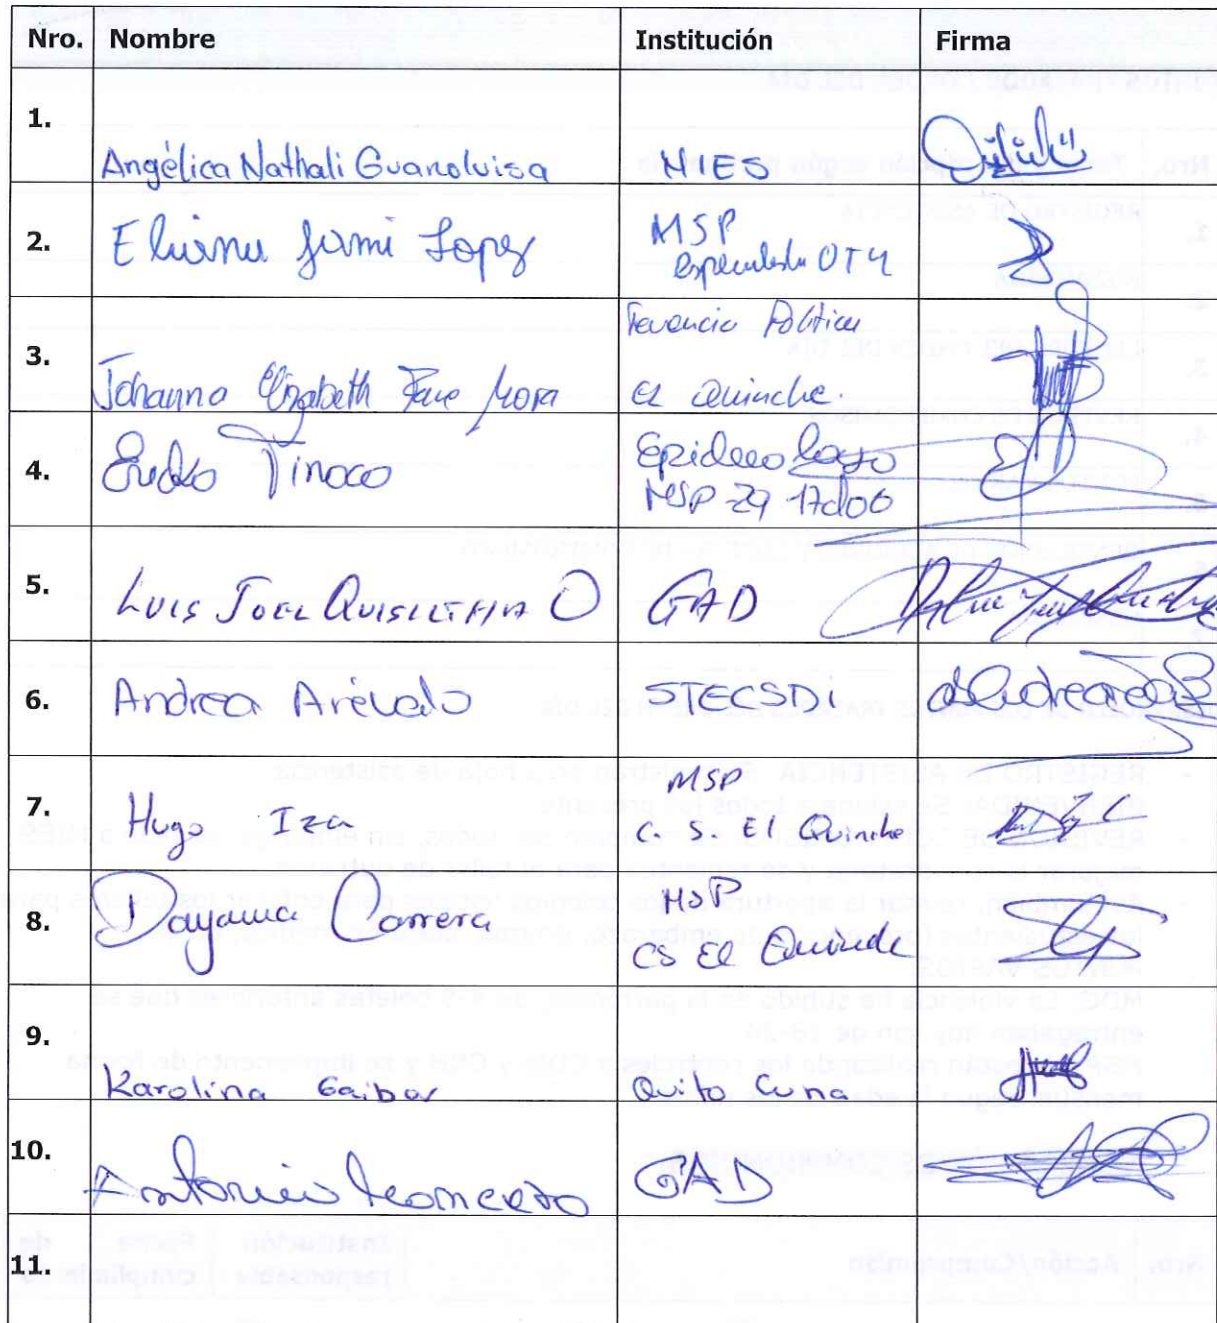 Nro. Nombre Institución Firma
1. Angélica Nathali Guanoluisa MIES
2. Eliana Jami Lopez MSP
especialista OT4
3. Johanna Elizabeth Mora Tenencia Política
El Quinche.
4. Tinoco Epidemiologo
MSP 29 17d06
5. LUIS JOEL O GAD
6. Andrea Arévalo STECSDI
7. Hugo Iza MSP
C. S. El Quinche
8. Dayana Carrera MSP
CS El Quinche
9. Karolina Gaibor Quito Cuna
10. Antonio GAD
11.